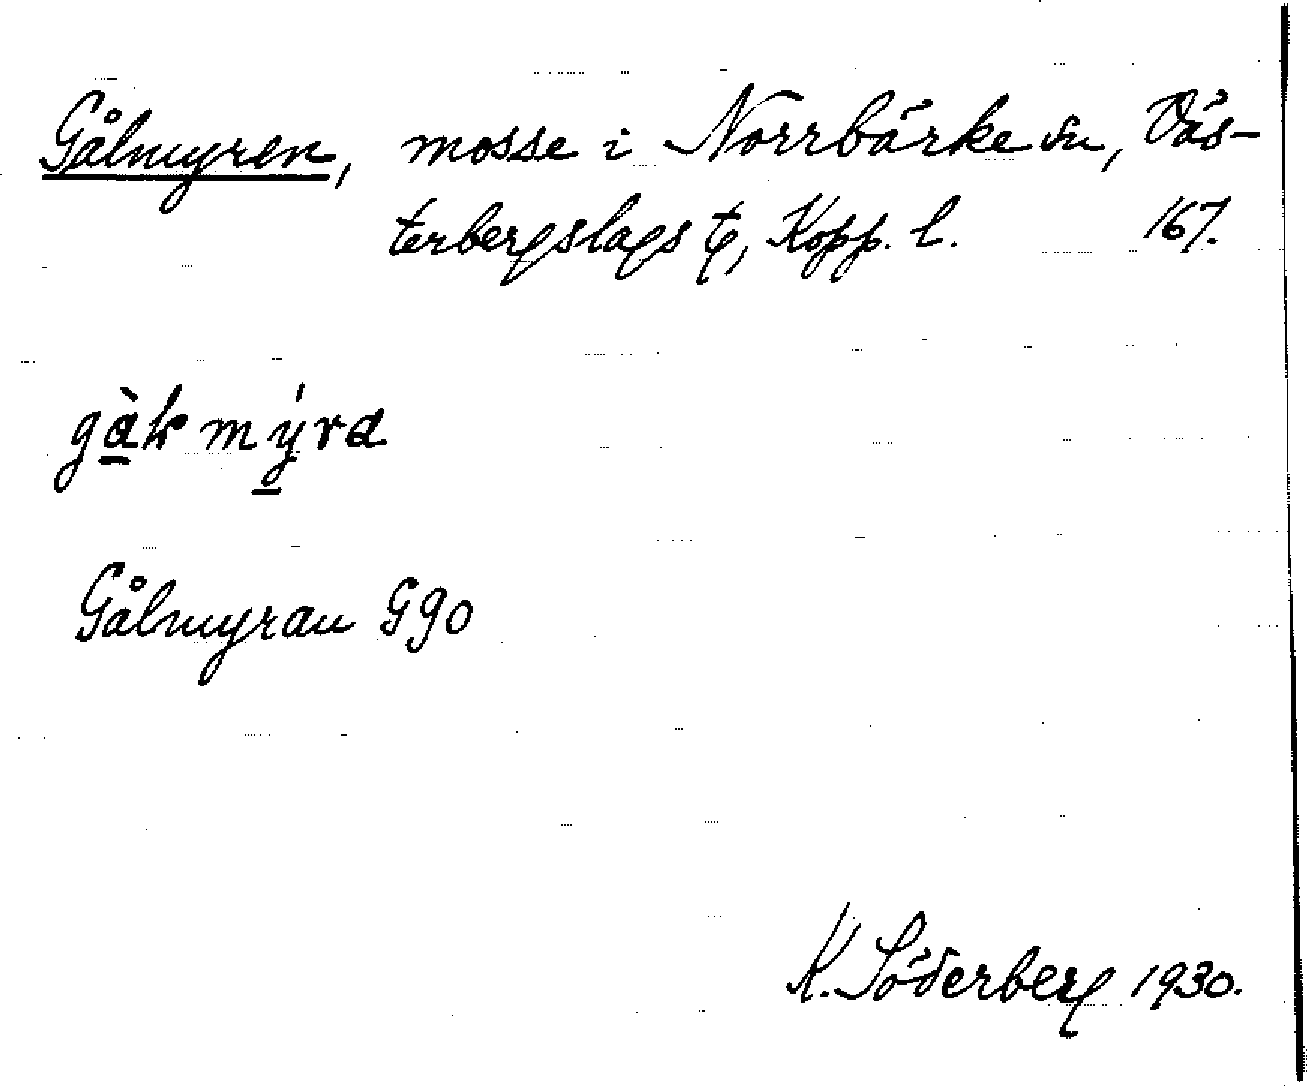 Gålmyren, mosse i Norrbärke sn, Väs-
terbergslags tg, Kopp. l. 167.
gàlmýra
Gålmyran G90
K. Söderberg 1930.